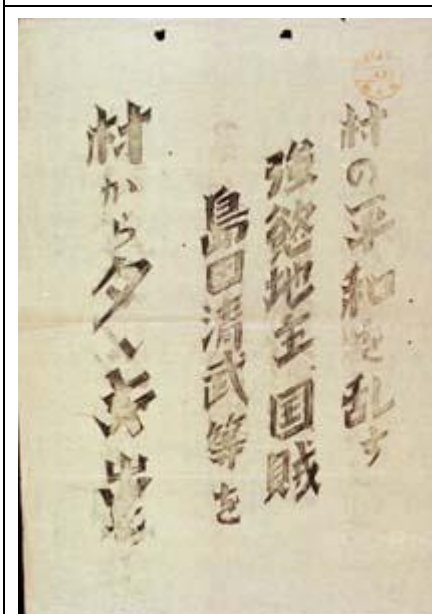 村の平和を乱す
強慾地主、国賊
島田清武等を
村からタヽキ出せ